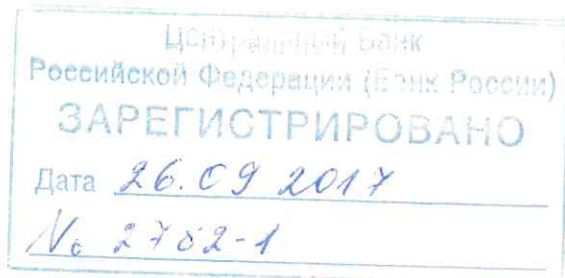 Центральный Банк
Российской Федерации (Банк России)
ЗАРЕГИСТРИРОВАНО
Дата 26.09 2017
№ 2782-1